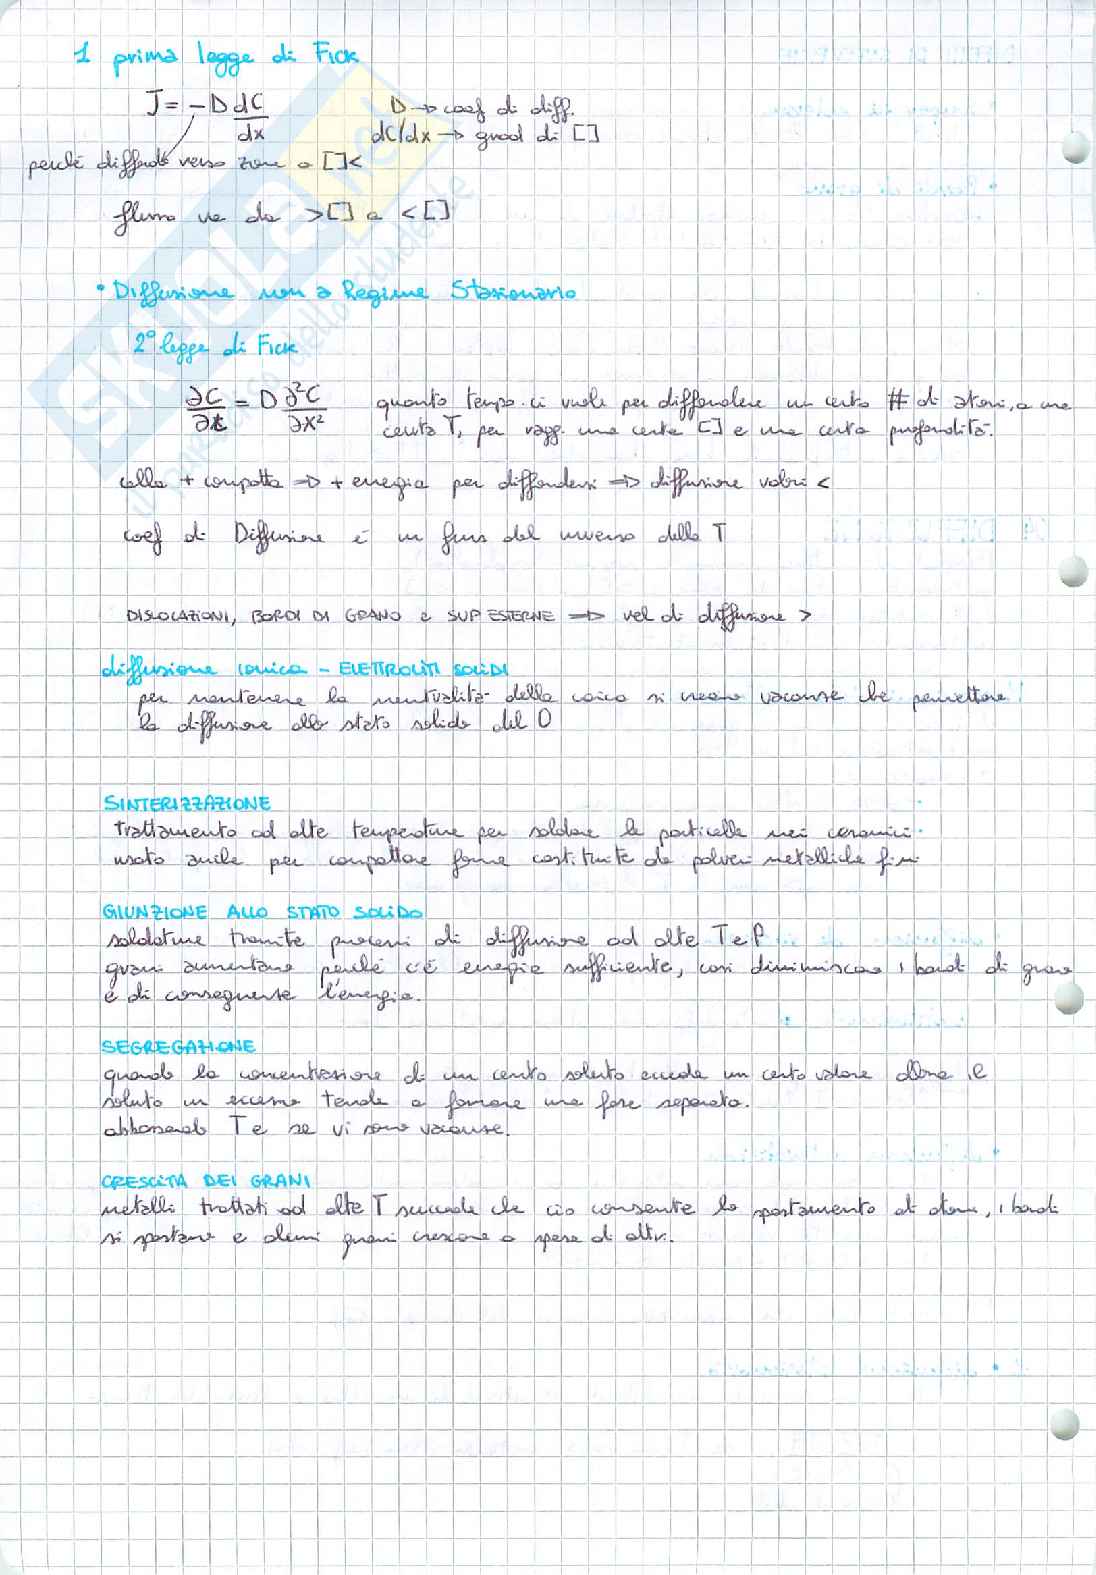 1 prima legge di Fick
J = -D dC/dx
D → coef di diff.
dC/dx → grad di []
perché diffonde verso zone a []<
flusso va da >[] a <[]
• Diffusione non a Regime Stazionario
2° legge di Fick
∂C/∂t = D ∂²C/∂x²
quanto tempo ci vuole per diffondere un certo # di atomi, a una
certa T, per ragg. una certa [] e una certa profondità.
cella + compatta ⇒ + energia per diffondersi ⇒ diffusione valori <
coef di Diffusione è in funz del inverso della T
DISLOCAZIONI, BORDI DI GRANO e SUP ESTERNE ⇒ vel di diffusione >
diffusione ionica - ELETTROLITI SOLIDI
per mantenere la neutralità della carica si creano vacanze che permettono
la diffusione allo stato solido del O
SINTERIZZAZIONE
trattamento ad alte temperature per saldare le particelle nei ceramici.
usato anche per compattare forme costituite da polveri metalliche fini
GIUNZIONE ALLO STATO SOLIDO
saldature tramite processi di diffusione ad alte T e P
grani aumentano perché c'è energia sufficiente, così diminuiscono i bordi di grano
e di conseguenza l'energia.
SEGREGAZIONE
quando la concentrazione di un certo soluto eccede un certo valore allora il
soluto in eccesso tende a formare una fase separata.
abbassando T e se vi sono vacanze.
CRESCITA DEI GRANI
metalli trattati ad alte T succede che ciò consente lo spostamento di atomi, i bordi
si spostano e alcuni grani crescono a spese di altri.
SKUOLA.net